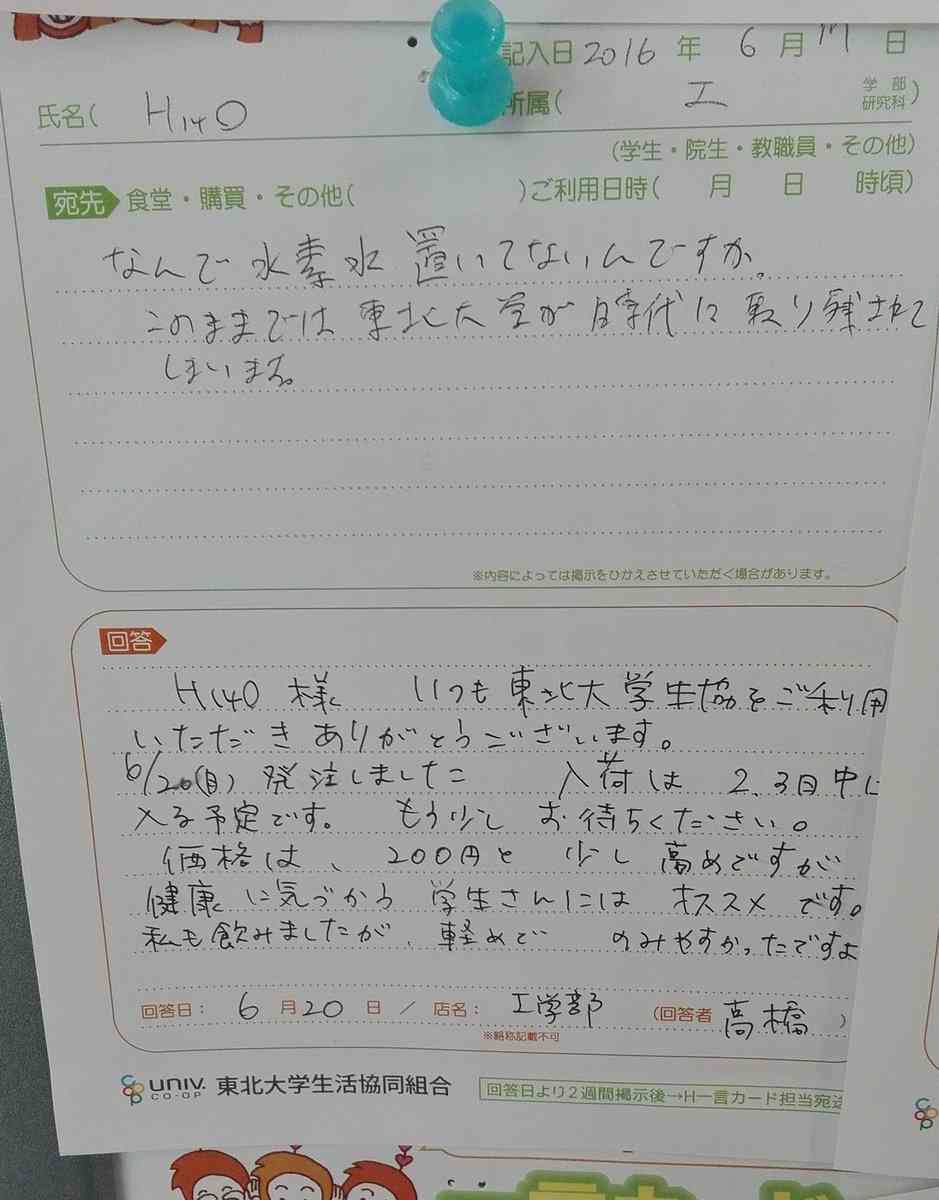 記入日 2016 年 6 月 17 日
氏名( H140 所属( 工 学部 研究科)
(学生・院生・教職員・その他)
宛先 食堂・購買・その他( )ご利用日時( 月 日 時頃)
なんで水素水置いてないんですか。
このままでは東北大学が時代に取り残されて
しまいます。
※内容によっては掲示をひかえさせていただく場合があります。
回答
H140 様 いつも東北大学生協をご利用
いただきありがとうございます。
6/20(月) 発注しました 入荷は 2、3日中に
入る予定です。 もう少し お待ちください。
価格は、200円と 少し 高めですが
健康に気づかう 学生さんには オススメ です。
私も飲みましたが、軽めで のみやすかったですよ
回答日: 6 月 20 日 / 店名: 工学部 (回答者 高橋 )
※略称記載不可
UNIV. CO-OP 東北大学生活協同組合 回答日より2週間掲示後→H一言カード担当宛送